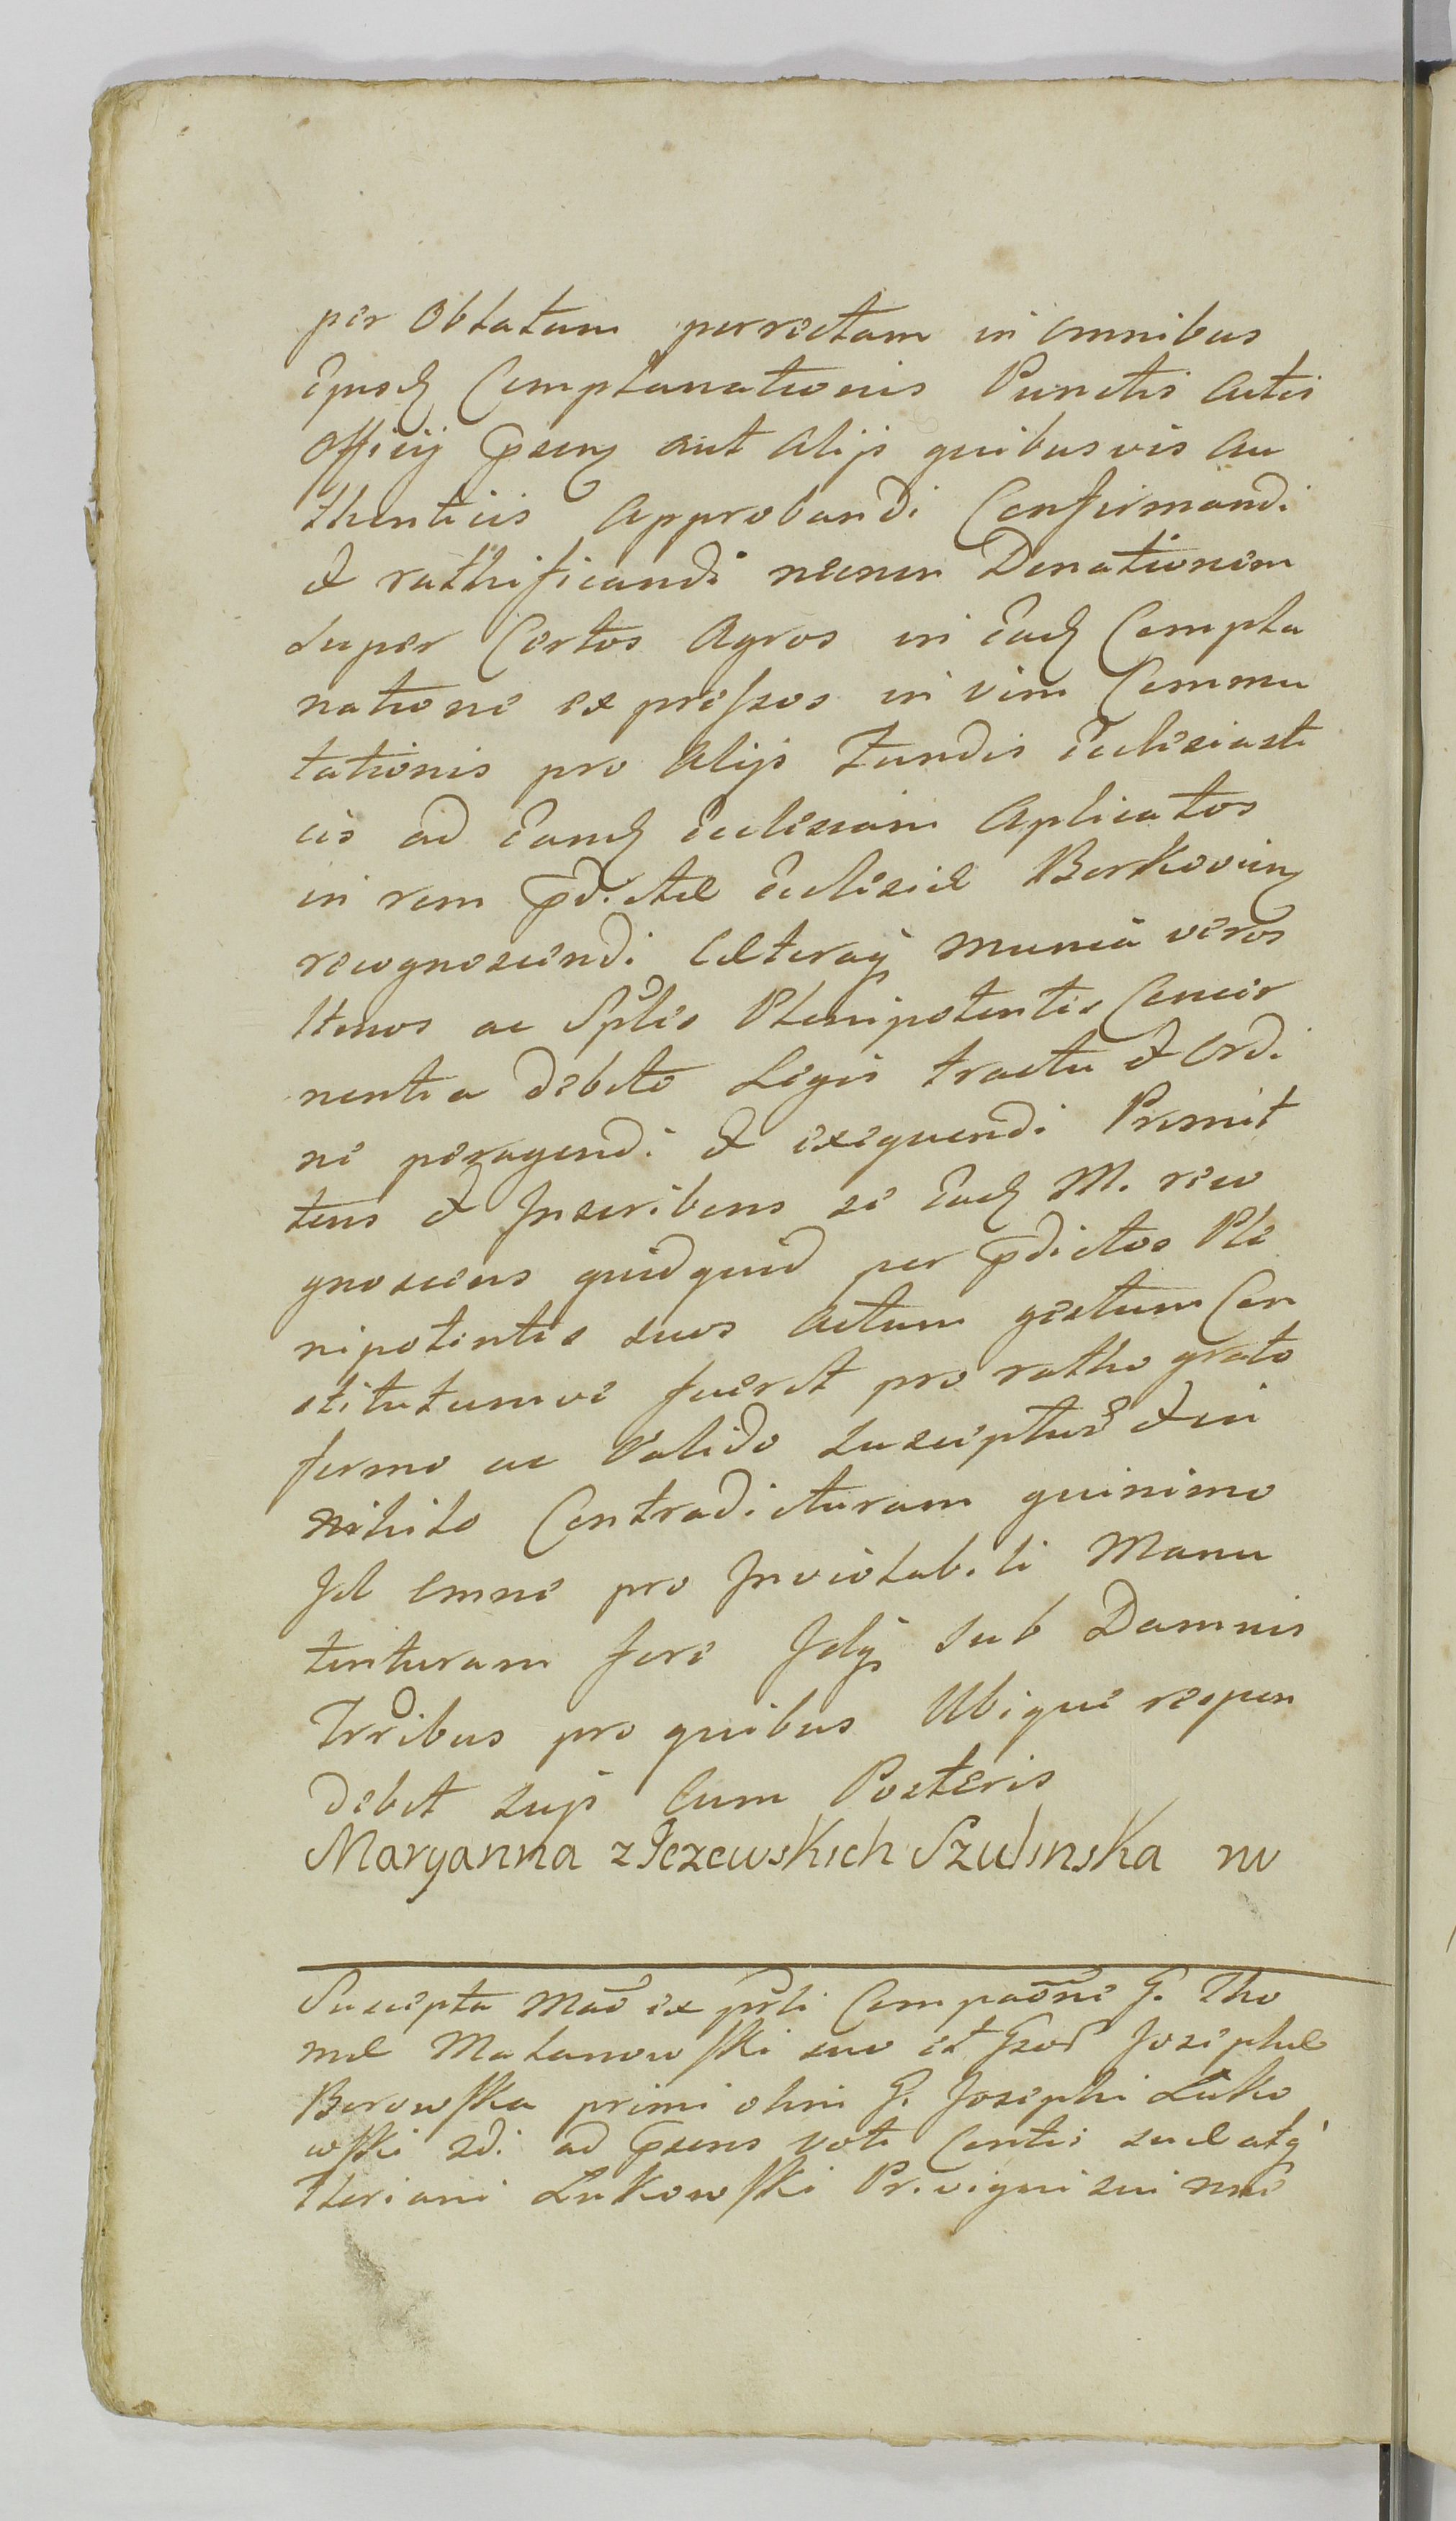 per Oblatam porrectam in omnibus
Ejusd Complanationis Punctis Actis
Officij psenq aut Alijs quibusvis Au
thenticis Approbandi Confirmandi
et rathificandi necnon Donationem
Super Certos Agros in Ead Compla
natione expressos in vim Commu
tationis pro Alijs Fundis Ecclesiasti
cis ad Eamd Ecclesiam Aplicatos
in rem pdictae Ecclesiae Borkovien
recognoscendi Caeteraq munia veros
Itenos ac Sples Plenipotentes Concer
nentia debito Legis tractu et Ordi
ne peragendi et exequendi Promit
tens et Inscribens se Ead M. reco
gnoscens quidquid per pdictos Ple
nipotentes suos Actum gestum Con
stitutumve fuerit pro ratho grato
firmo ac Valido Suscepturã et in
nihilo Contradicturam quinimo
Id omne pro Inviolabili Manu
tenturam fore Idq sub Damnis
Trribus pro quibus Ubique respon
debit Suis Cum Posteris
Maryanna z Jezewskich Szulinska m
Suscepta Mãe ex prli Compaõne G. Tho
mae Makanowski suo et Gsae Josephae
Borowska primi olim G. Josephi Luko
wski 2di ad psens voti Contis suae atq
Floriani Lukowski Privigni sui nne